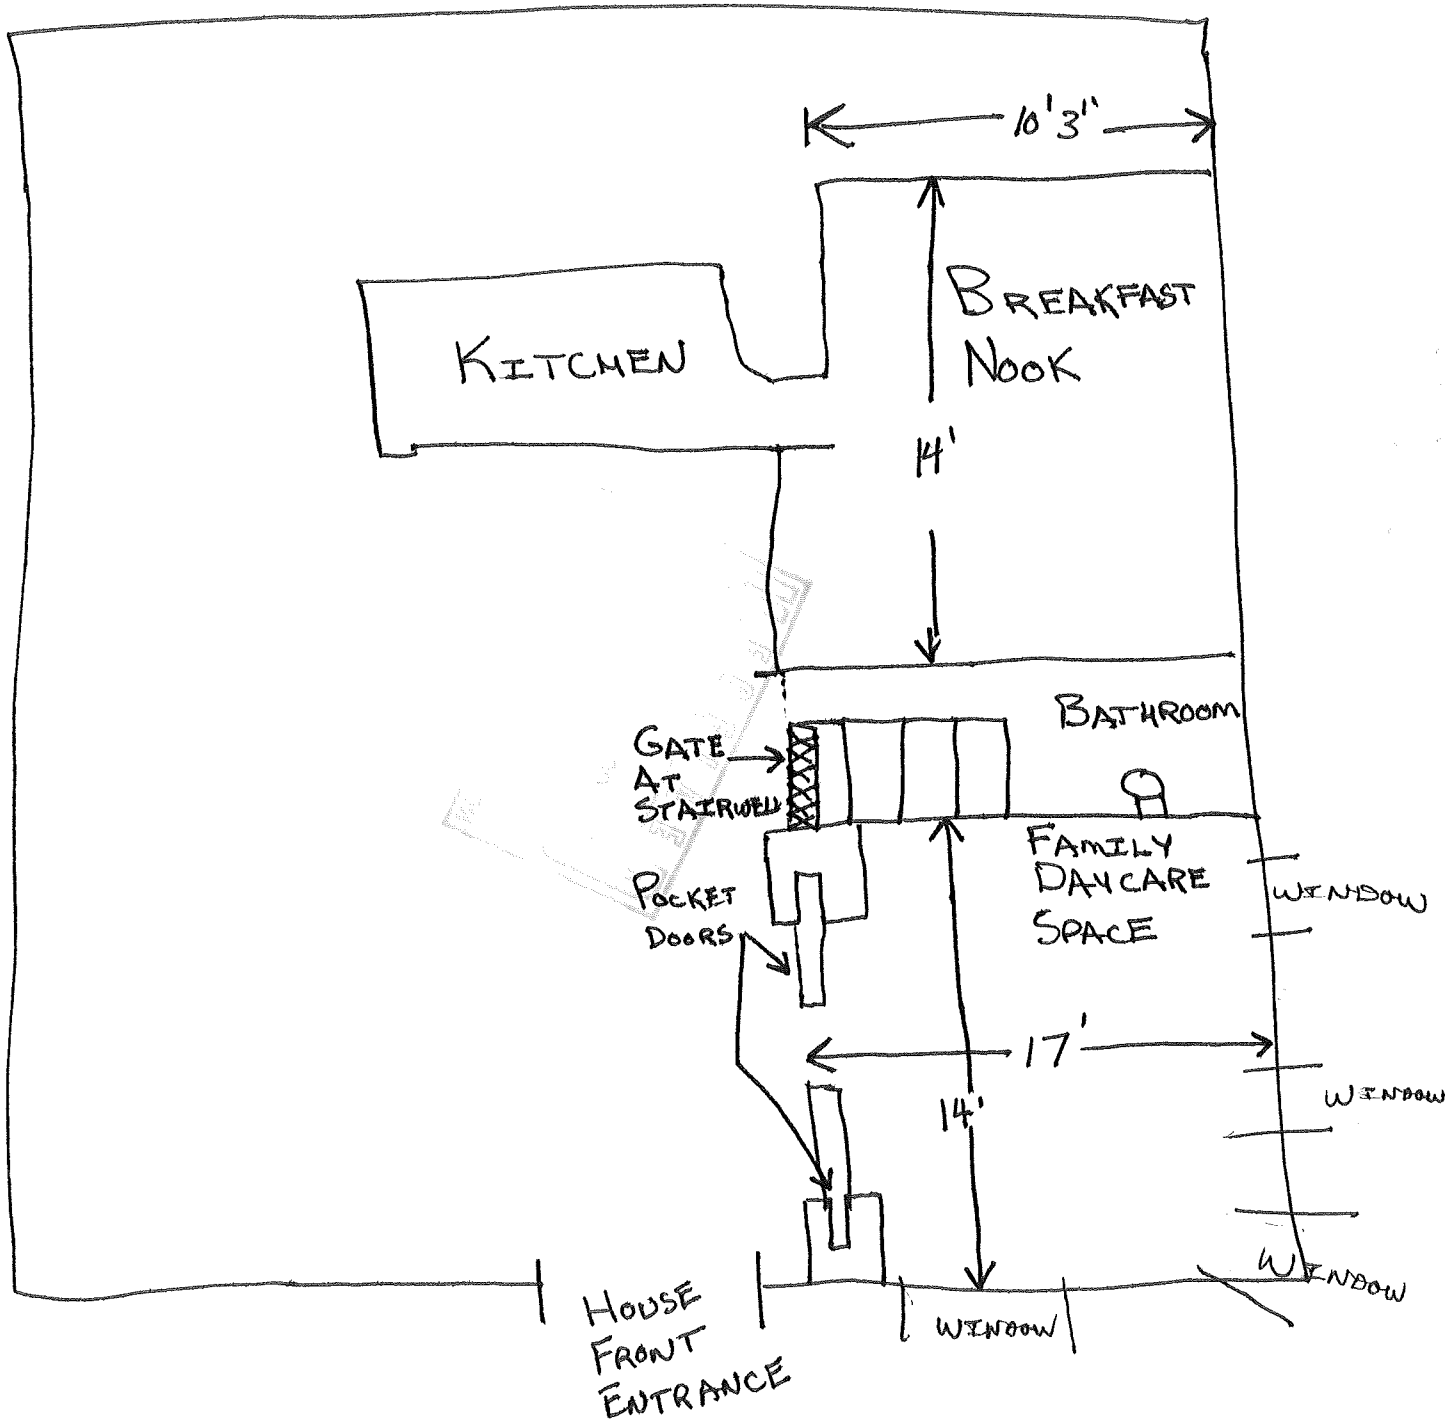 10'3"
BREAKFAST
NOOK
KITCHEN
14'
BATHROOM
GATE
AT
STAIRWELL
FAMILY
DAYCARE
SPACE
WINDOW
POCKET
DOORS
17'
WINDOW
14'
WINDOW
WINDOW
HOUSE
FRONT
ENTRANCE